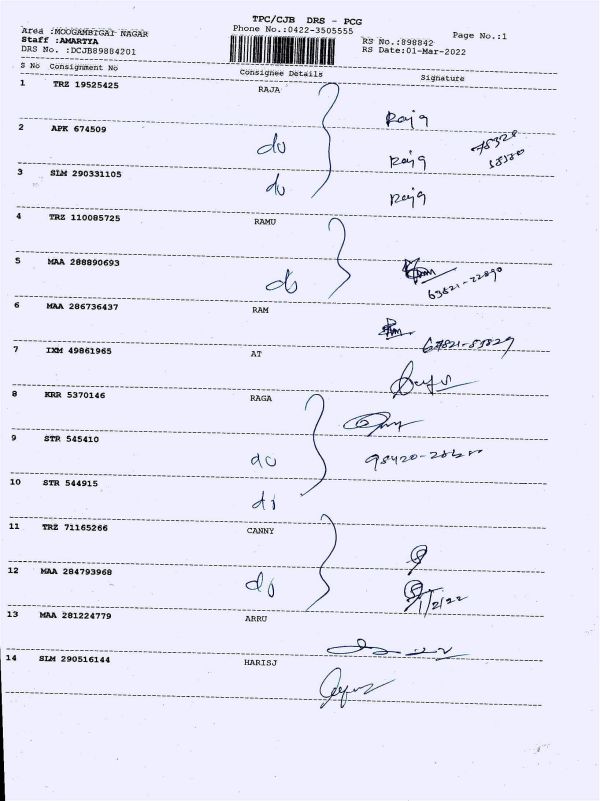 TPC/CJB DRS - PCG
Area :MOOGAMBIGAI NAGAR Phone No.:0422-3505555 Page No.:1
Staff :AMARTYA RS No.:898842
DRS No. :DCJB89884201 RS Date:01-Mar-2022
S No Consignment No Consignee Details Signature
1 TRZ 19525425 RAJA
Raja
2 APK 674509
do Raja
3 SLM 290331105
do Raja
4 TRZ 110085725 RAMU
5 MAA 288890693
do
6 MAA 286736437 RAM
7 IXM 49861965 AT
8 KRR 5370146 RAGA
9 STR 545410
do
10 STR 544915
do
11 TRZ 71165266 CANNY
12 MAA 284793968
do 1/2/22
13 MAA 281224779 ARRU
14 SLM 290516144 HARISJ